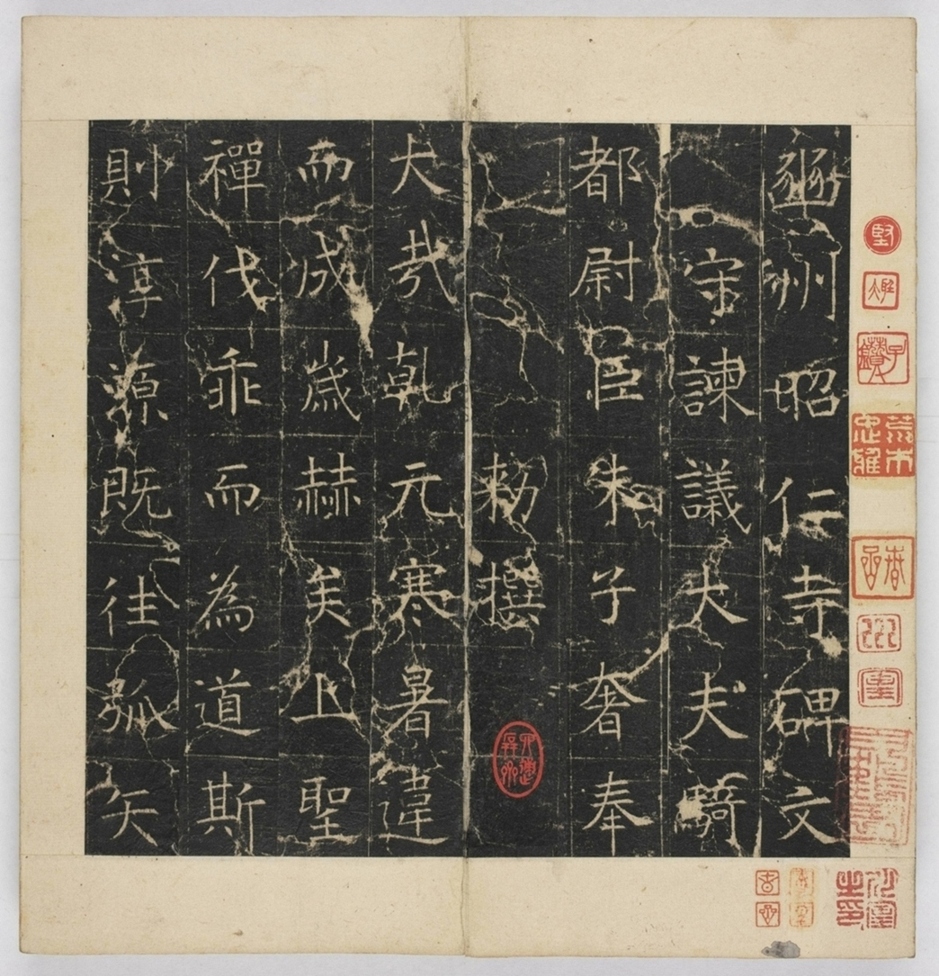 豳州昭仁寺碑文
守諫議大夫騎
都尉臣朱子奢奉
勑撰
大哉乾元寒暑違
而成歲赫矣上聖
禪伐乖而為道斯
則淳源既往弧矢